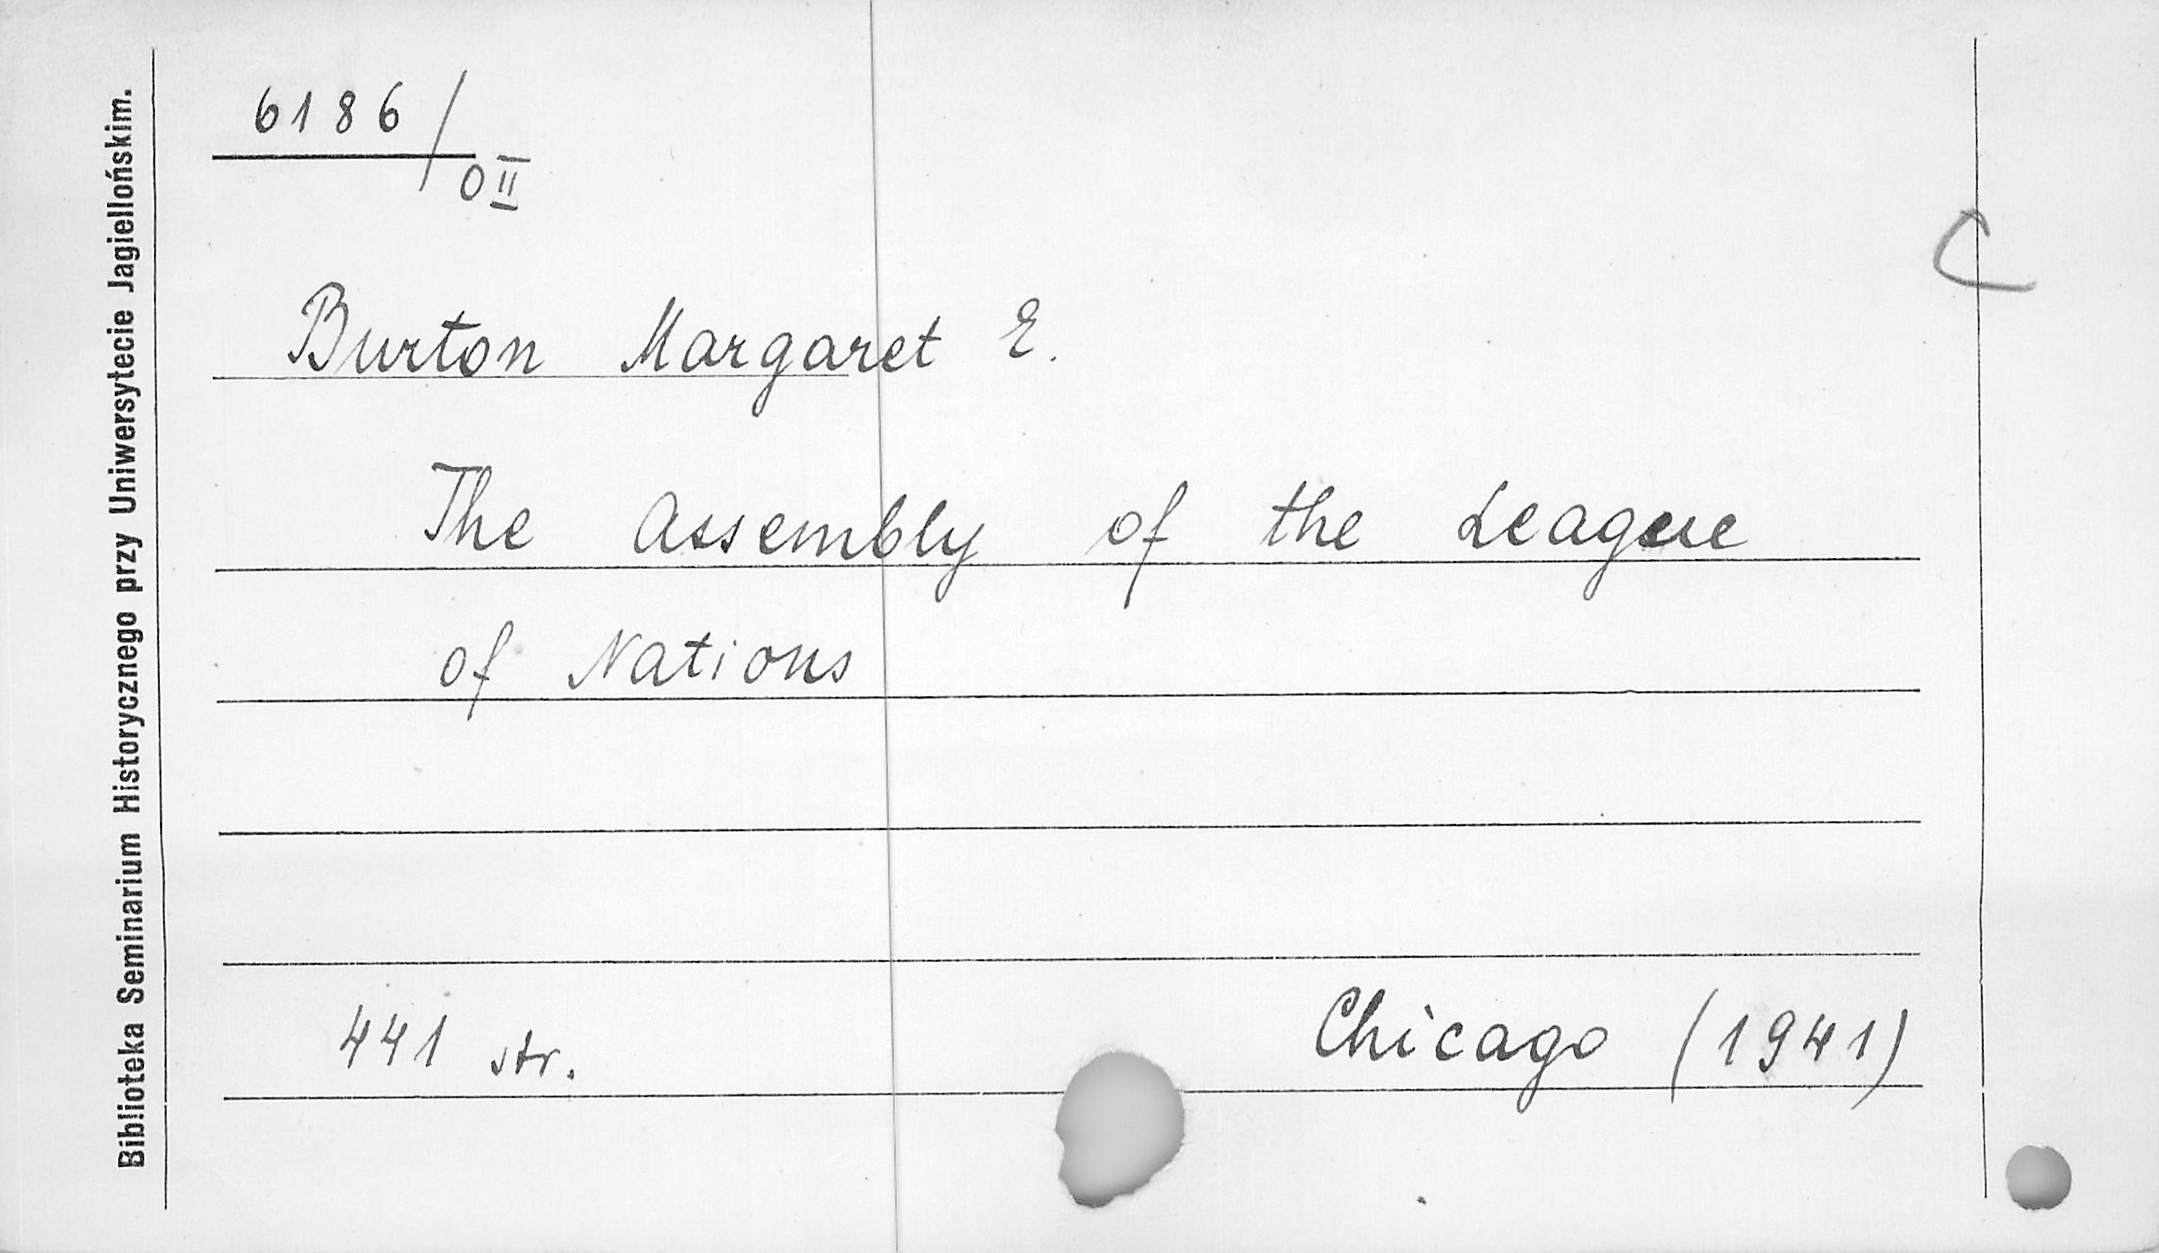 Biblioteka Seminarium Historycznego przy Uniwersytecie Jagiellońskim.
6186/
O II
C
Burton Margaret E.
The Assembly of the League
of Nations
441 str.
Chicago (1941)